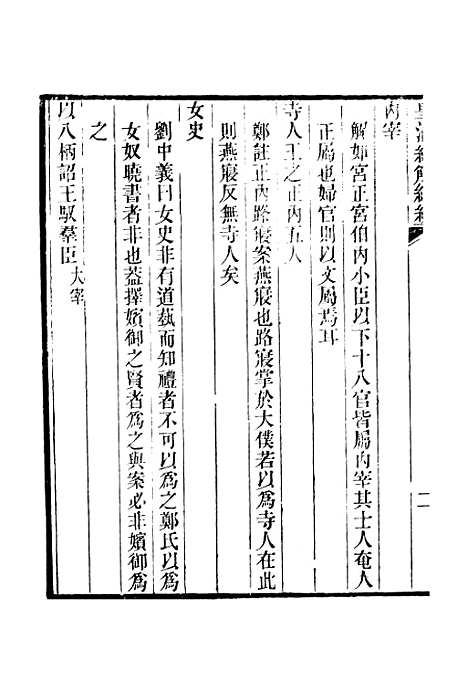 皇清經解續編
二
內宰
解如宮正宮伯內小臣以下十八官皆屬內宰其士人奄人
正屬也婦官則以文屬焉耳
寺人王之正內五人
鄭註正內路寢案燕寢也路寢掌於大僕若以為寺人在此
則燕寢反無寺人矣
女史
劉中義曰女史非有道蓺而知禮者不可以為之鄭氏以為
女奴曉書者非也葢擇嬪御之賢者為之與案必非嬪御為
之
以八柄詔王馭羣臣大宰